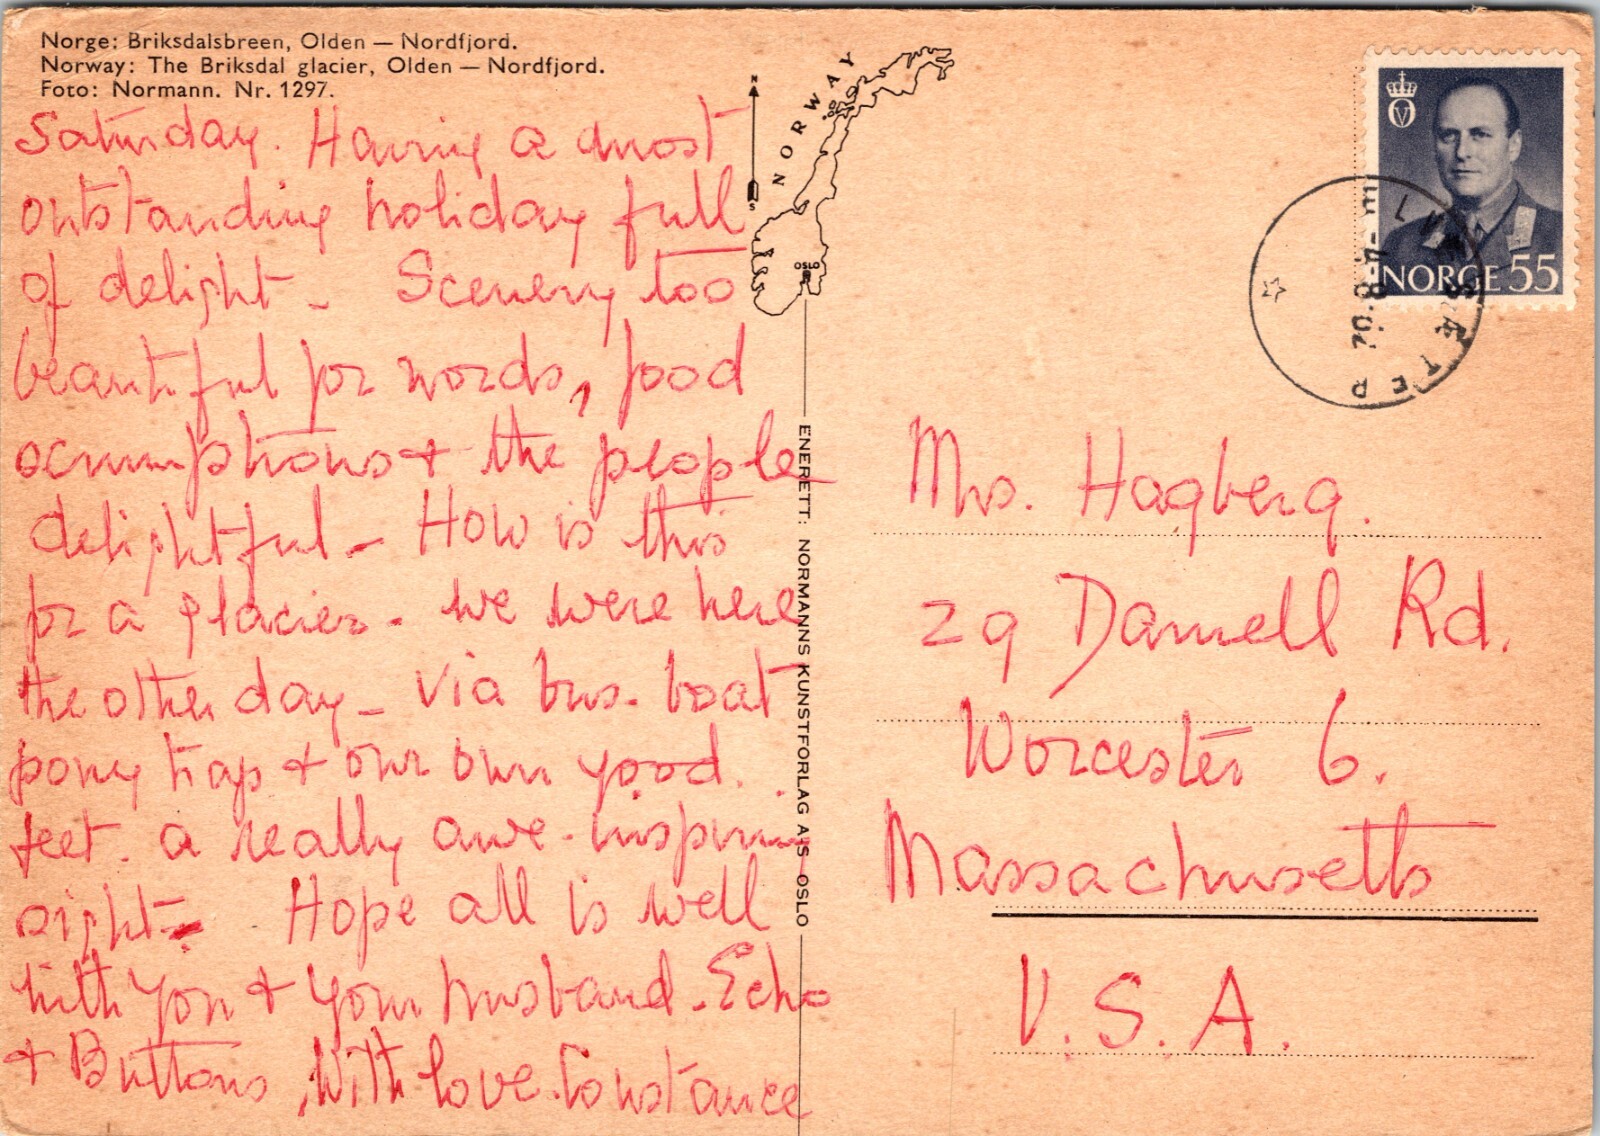 Norge: Briksdalsbreen, Olden — Nordfjord.
Norway: The Briksdal glacier, Olden — Nordfjord.
Foto: Normann. Nr. 1297.
Saturday. Having a most
outstanding holiday full
of delight - Scenery too
beautiful for words, food
scrumptious + the people
delightful - How is this
for a glacier - we were here
the other day - via bus - boat
pony trap + our own good
feet. a really awe-inspiring
sight - Hope all is well
with you + your husband - Echo
+ Buttons, With love - Constance
N
S
NORWAY
OSLO
ENERETT: NORMANNS KUNSTFORLAG A/S OSLO
NORGE 55
-4.8
SÆTER
Mrs. Hagberg.
29 Darnell Rd.
Worcester 6.
Massachusetts
U.S.A.